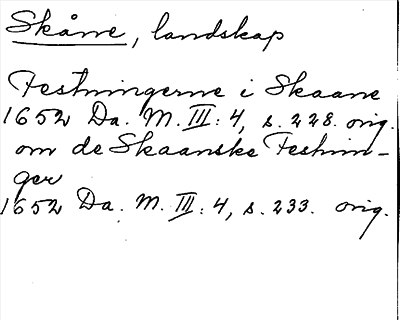 Skåne, landskap
Festningerne i Skaane
1652 Da. M. III: 4, s. 228. orig.
om de Skaanske Festnin-
ger
1652 Da. M. III: 4, s. 233. orig.